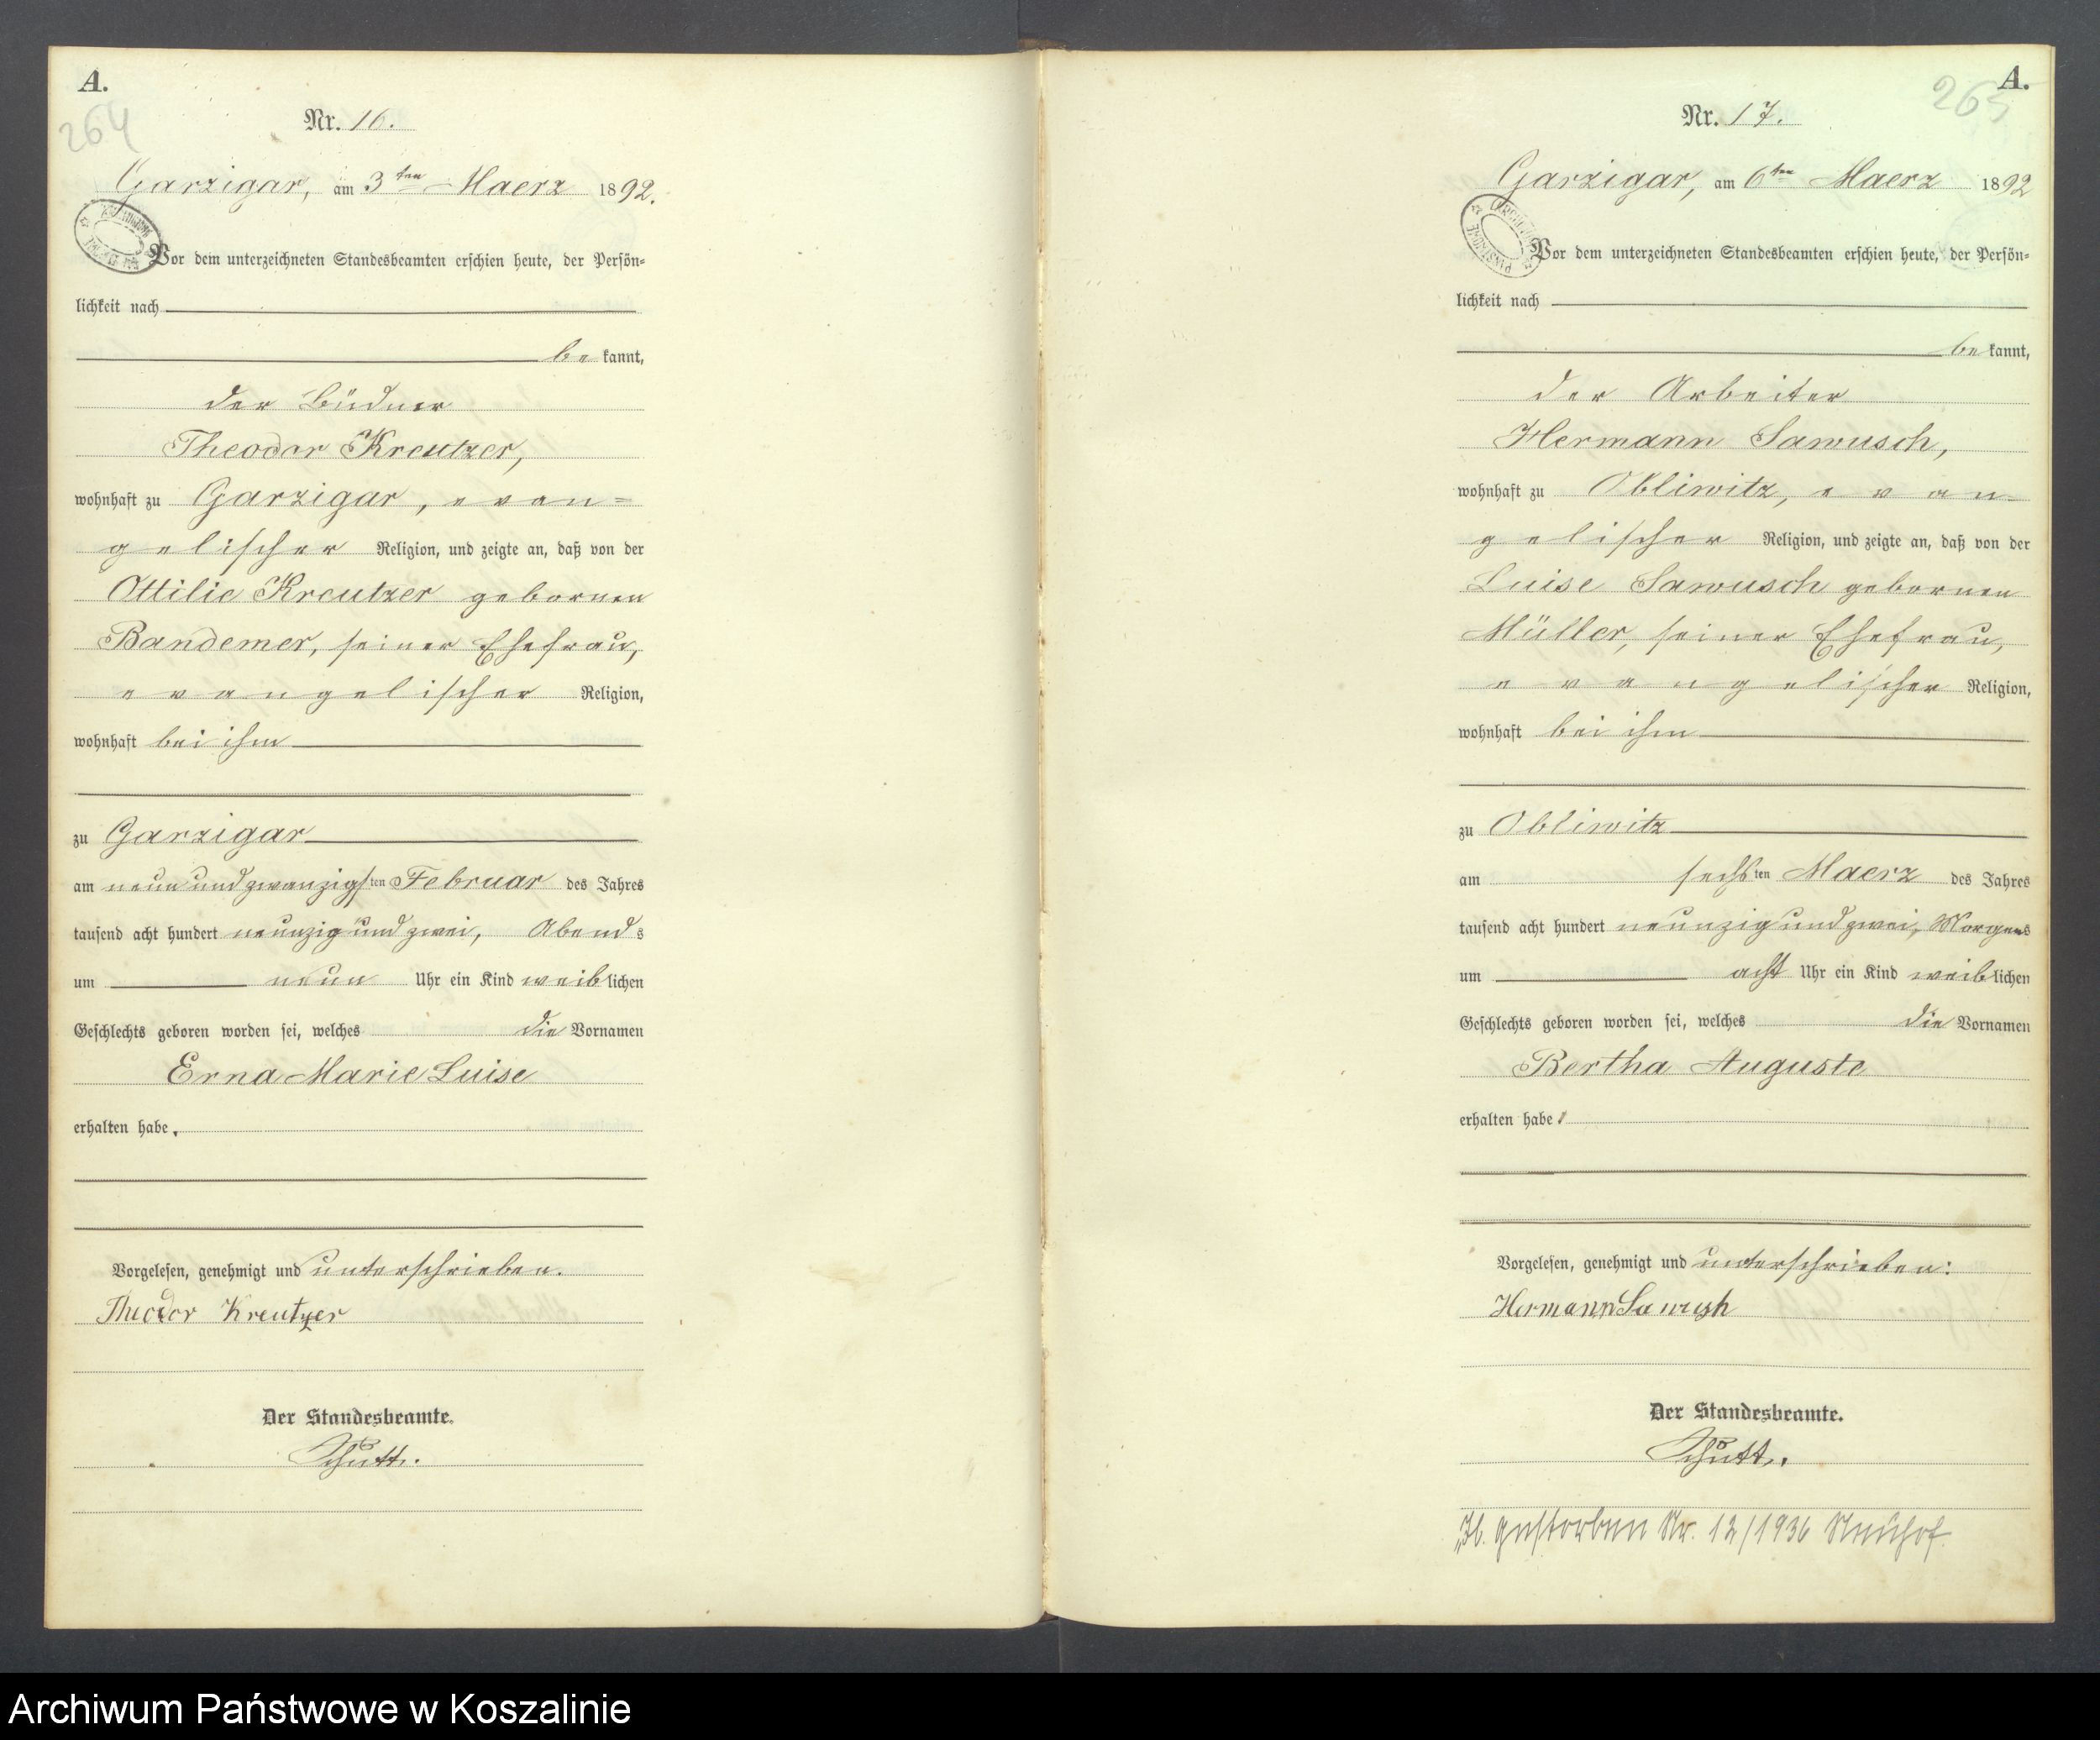 A.
264
Nr. 16.
Garzigar, am 3ten Maerz 1892.
Vor dem unterzeichneten Standesbeamten erschien heute, der Persön-
lichkeit nach
be kannt,
der Büdner
Theodor Kreutzer,
wohnhaft zu Garzigar, evan=
gelischer Religion, und zeigte an, daß von der
Ottilie Kreutzer gebornen
Bandemer, seiner Ehefrau,
evangelischer Religion,
wohnhaft bei ihm
zu Garzigar
am neunundzwanzigsten Februar des Jahres
tausend acht hundert neunzig und zwei, Abends
um neun Uhr ein Kind weiblichen
Geschlechts geboren worden sei, welches die Vornamen
Erna Marie Luise
erhalten habe.
Vorgelesen, genehmigt und unterschrieben.
Theodor Kreutzer
Der Standesbeamte.
Schutt.
A.
265
Nr. 17.
Garzigar, am 6ten Maerz 1892
Vor dem unterzeichneten Standesbeamten erschien heute, der Persön-
lichkeit nach
be kannt,
der Arbeiter
Hermann Sawusch,
wohnhaft zu Obliwitz, evan-
gelischer Religion, und zeigte an, daß von der
Luise Sawusch gebornen
Müller, seiner Ehefrau,
evangelischer Religion,
wohnhaft bei ihm
zu Obliwitz
am sechsten Maerz des Jahres
tausend acht hundert neunzig und zwei, Morgens
um acht Uhr ein Kind weiblichen
Geschlechts geboren worden sei, welches die Vornamen
Bertha Auguste
erhalten habe.
Vorgelesen, genehmigt und unterschrieben:
Hermann Sawusch
Der Standesbeamte.
Schutt.
gestorben Nr. 12/1936 Neuhof
Archiwum Państwowe w Koszalinie